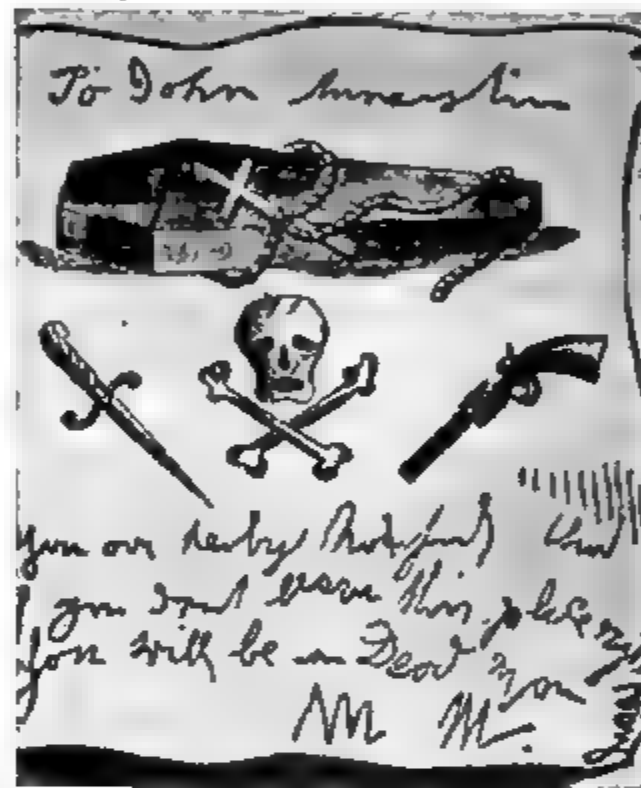 To John
You are herby Notifyed that
if you dont leave this place
You will be a Dead man
M M.